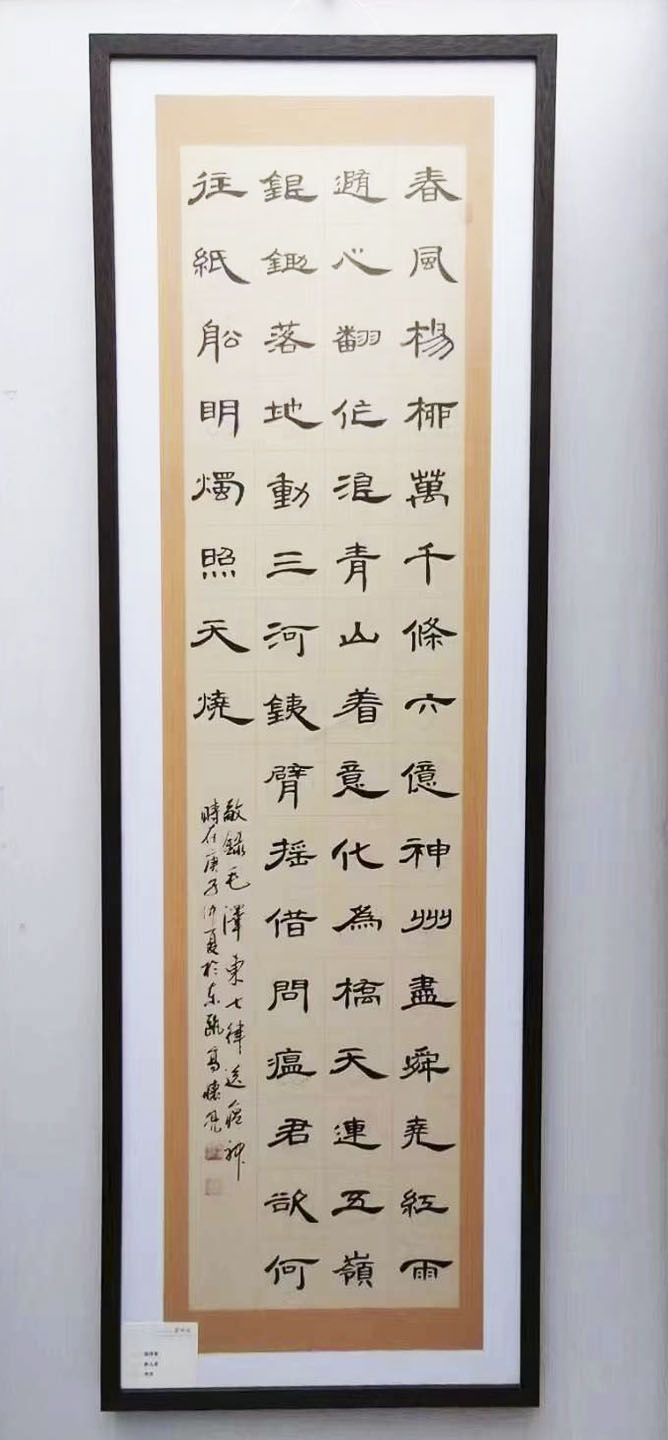 春風楊柳萬千條六億神州盡舜堯紅雨
遀心翻作浪青山着意化為橋天連五嶺
銀鋤落地動三河銕臂摇借問瘟君欲何
往紙船明燭照天燒
敬錄毛澤東七律送瘟神
時在庚子仲夏於东甌高懷亮